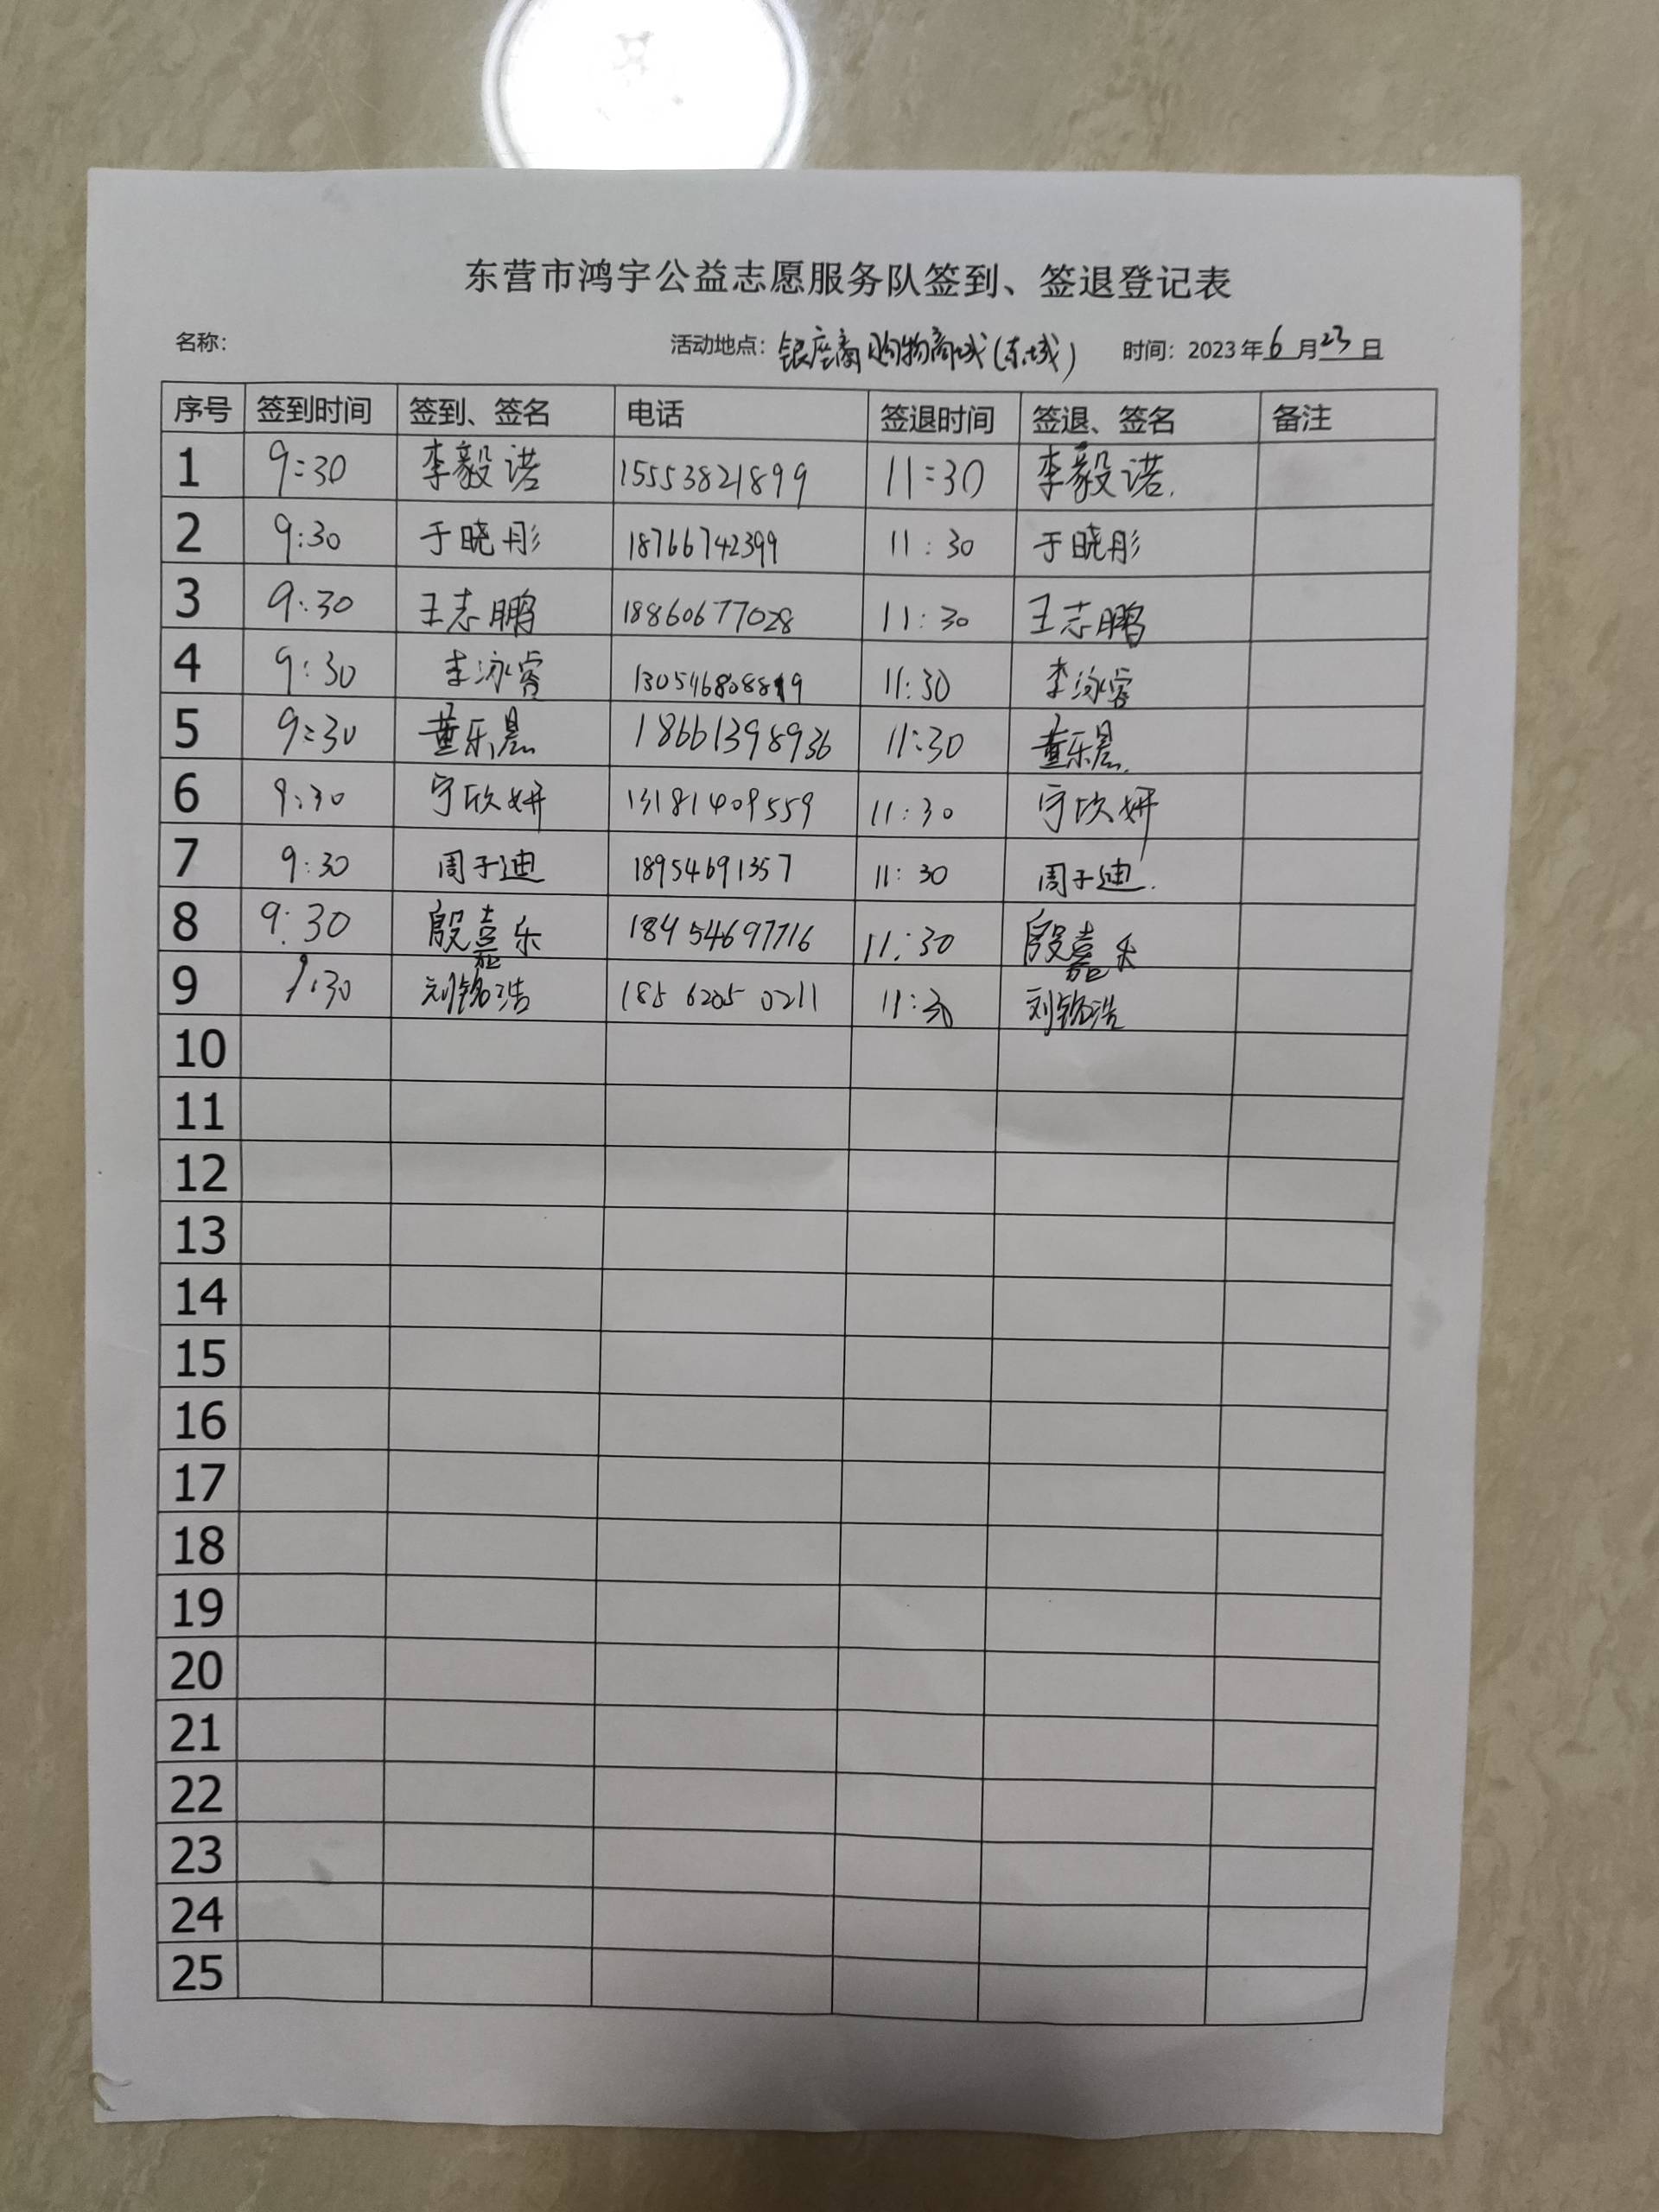 东营市鸿宇公益志愿服务队签到、签退登记表
名称： 活动地点：银座商购物商城(东城) 时间：2023年6月23日
序号 签到时间 签到、签名 电话 签退时间 签退、签名 备注
1 9:30 李毅诺 15553821899 11:30 李毅诺.
2 9:30 于晓彤 18766742399 11:30 于晓彤
3 9:30 王志鹏 18860677028 11:30 王志鹏
4 9:30 李泳睿 13054680889 11:30 李泳睿
5 9:30 董乐晨 18661398936 11:30 董乐晨.
6 9:30 宁欣妍 13181409559 11:30 宁欣妍
7 9:30 周子迪 18954691357 11:30 周子迪.
8 9:30 殷嘉乐 18454697716 11:30 殷嘉乐
9 9:30 刘铭浩 185 6205 0211 11:30 刘铭浩
10
11
12
13
14
15
16
17
18
19
20
21
22
23
24
25